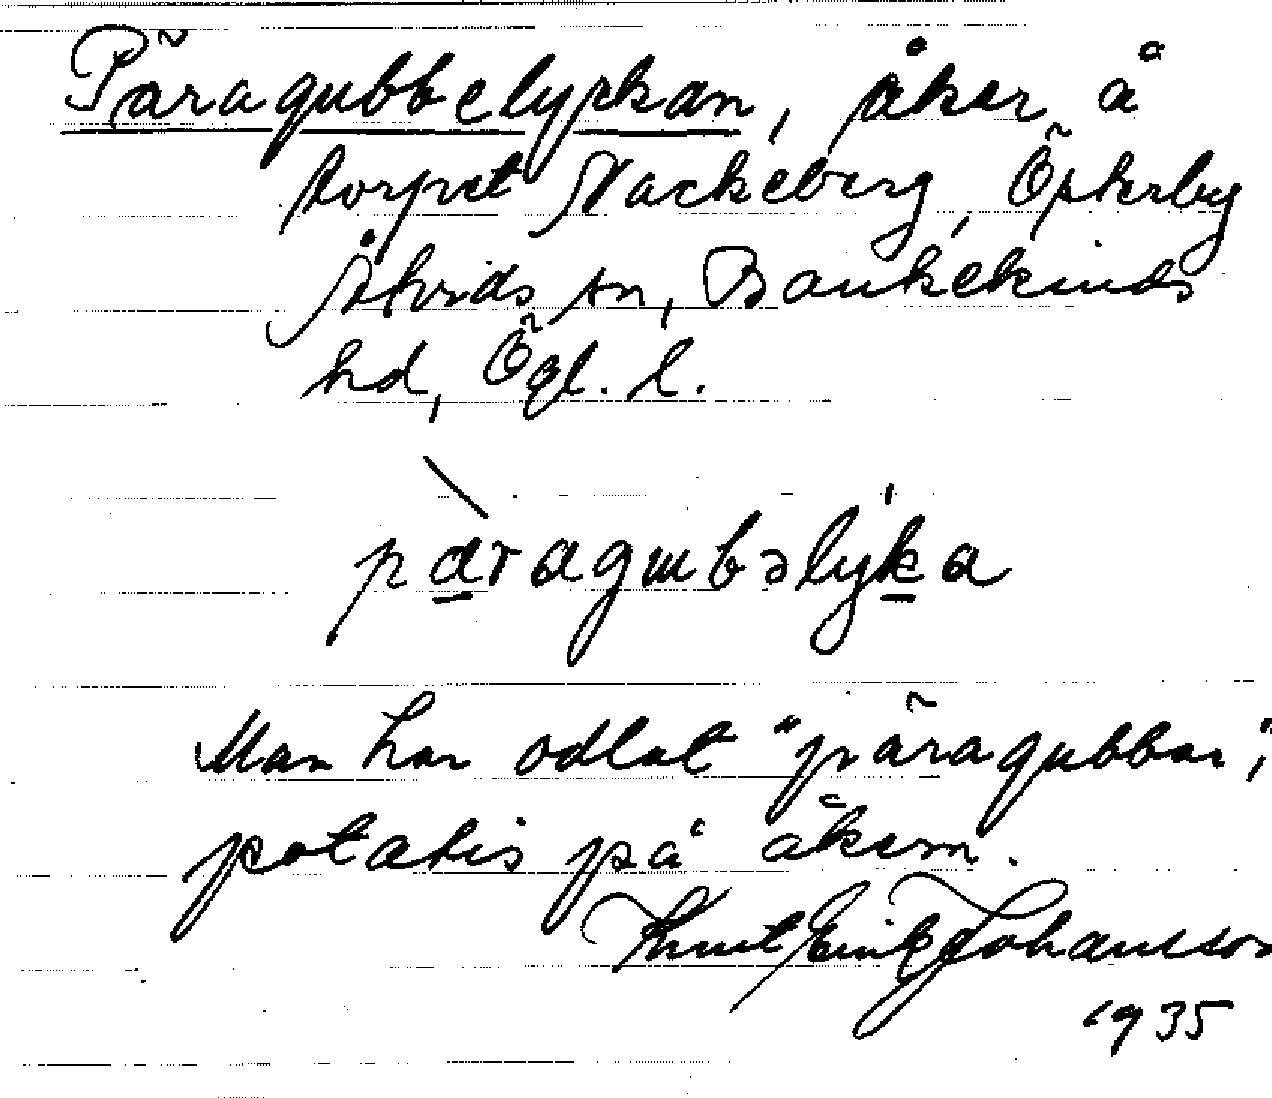 Päragubbelyckan, åker å
torpet Nackeberg, Österby
Åtvids sn, Bankekinds
hd, Ögl. l.
pàragubəlyka
Man har odlat "päragubbar",
potatis på åkern.
Knut Erik Johansson
1935